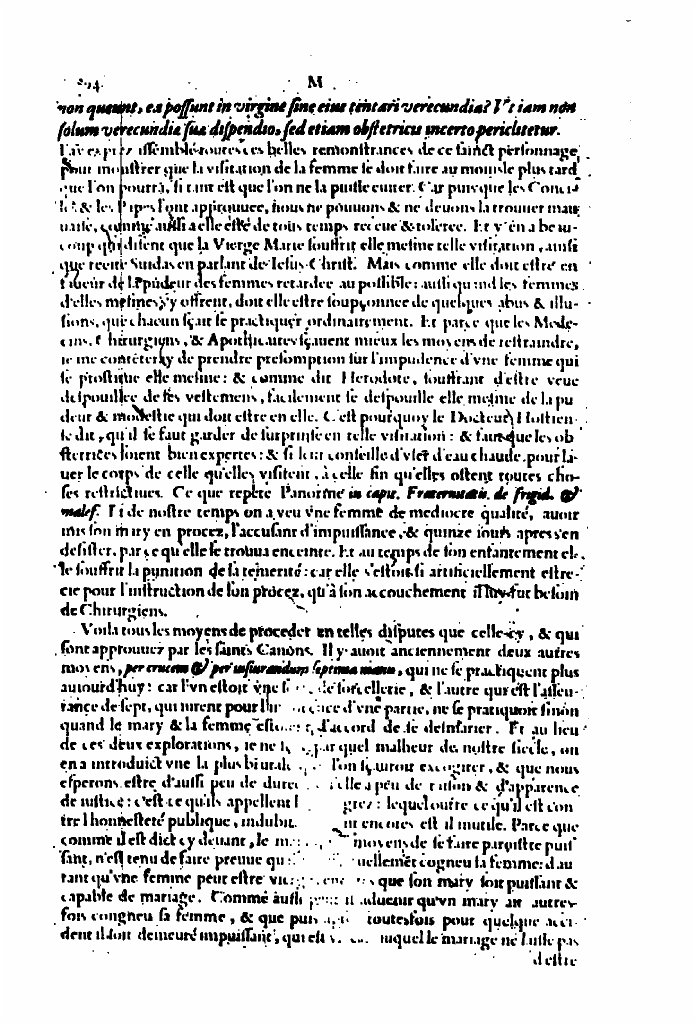 M
non queunt, ea possunt in virgine sine eius tentari verecundia? Vt iam non
solum verecundia sua dispendio, sed etiam obstetricis incerto periclitetur.
I'ay assemblé toutes ces belles remonstrances de ce sainct personnage,
pour monstrer que la visitation de la femme se doit faire au moins le plus tard
que l'on pourra, si tant est que l'on ne la puisse euiter. Car puis que les Conci-
les & les Papes l'ont approuuee, nous ne pouuons & ne deuons la trouuer mau
uaise, comme aussi a elle esté de tous temps receue & toleree. Et y en a beau-
coup qui disent que la Vierge Marie souffrit elle mesme telle visitation, ainsi
que recite Suidas en parlant de Iesus-Christ. Mais comme elle doit estre en
faueur de la pudeur des femmes retardee au possible: aussi quand les femmes
d'elles mesmes s'y offrent, doit elle estre soupçonnee de quelques abus & illu-
sions, que chacun sçait se practiquer ordinairement. Et parce que les Mede-
cins, Chirurgiens, & Apothicaires sçauent mieux les moyens de restraindre,
ie me contēteray de prendre presomption sur l'impudence d'vne femme qui
se prostitue elle mesme: & comme dit Herodote, souffrant d'estre veue
despouillee de ses vestemens, facilement se despouille elle mesme de la pu
deur & modestie qui doit estre en elle. C'est pourquoy le Docteur Hostien-
se dit, qu'il se faut garder de surprinse en telle visitation: & faut que les ob
stetrices soient bien expertes: & si leur conseille d'vser d'eau chaude, pour la-
uer le corps de celle qu'elles visitent, à celle fin qu'elles ostent toutes cho-
ses restrictiues. Ce que repete Panorme in capit. Fraternitatis. de frigid. &
malef. Et de nostre temps on a veu vne femme de mediocre qualité, auoir
mis son mary en procez, l'accusant d'impuissance, & quinze iours apres s'en
desister, parce qu'elle se trouua enceinte. Et au temps de son enfantement el-
le souffrit la punition de sa temerité: car elle s'estoit si artificiellement estre-
cie pour l'instruction de son procez, qu'à son accouchement il luy fut besoin
de Chirurgiens.
Voila tous les moyens de proceder en telles disputes que celle-cy, & qui
sont approuuez par les saints Canons. Il y auoit anciennement deux autres
moyens, per crucem & per iusiurandum septima manu, qui ne se practiquent plus
auiourd'huy: car l'vn estoit vne de sorcellerie, & l'autre qui est l'asseu-
rance de sept, qui iurent pour l'in d'vne partie, ne se pratiquoit sinon
quand le mary & la femme d'accord de se desmarier. Et au lieu
de ces deux explorations, ie ne par quel malheur de nostre siecle, on
en a introduict vne la plus l'on sçauroit excogiter, & que nous
esperons estre d'aussi peu de elle a peu de raison & d'apparence
de iustice: c'est ce qu'ils appellent lequel outre ce qu'il est con
tre l'honnesteté publique, encores est il inutile. Parce que
comme il est dict cy deuant, le moyens de se faire paroistre puis
sant, n'est tenu de faire preuue cogneu la femme: d'au
tant qu'vne femme peut estre que son mary soit puissant &
capable de mariage. Comme aussi aduenir qu'vn mary ait autres-
fois congneu sa femme, & que puis toutesfois pour quelque acci-
dent il soit demeuré impuissant, qui est auquel le mariage ne laisse pas
d'estre